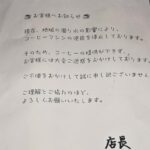 お客様へお知らせ
現在、地域の濁り水の影響により、
コーヒーマシンの使用を停止しております。
そのため、コーヒーの提供ができず、
お客様には大変ご迷惑をおかけしております。
ご不便をおかけして誠に申し訳ございません
ご理解とご協力のほど、
よろしくお願いいたします。
店長